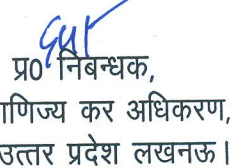 प्र0 निबन्धक,
ाणिज्य कर अधिकरण,
उत्तर प्रदेश लखनऊ।